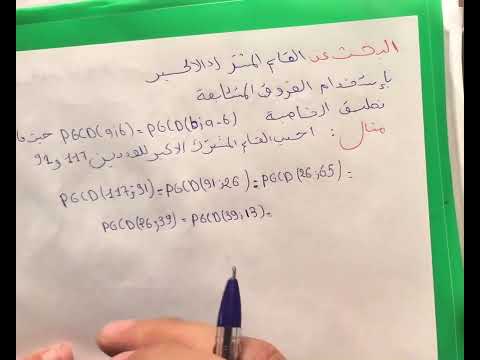 البحث عن القاسم المشترك الأكبر
بإستخدام الفروق المتتابعة
نطبق الخاصية PGCD(a;b)=PGCD(b;a-b) حيث
مثال: احسب القاسم المشترك الأكبر للعددين 117 و 91
PGCD(117;91)=PGCD(91;26)=PGCD(26;65)=
PGCD(26;39)=PGCD(39;13)=